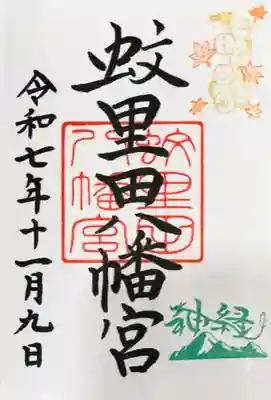 蚊里田八幡宮
令和七年十一月九日
蚊里田
八幡宮